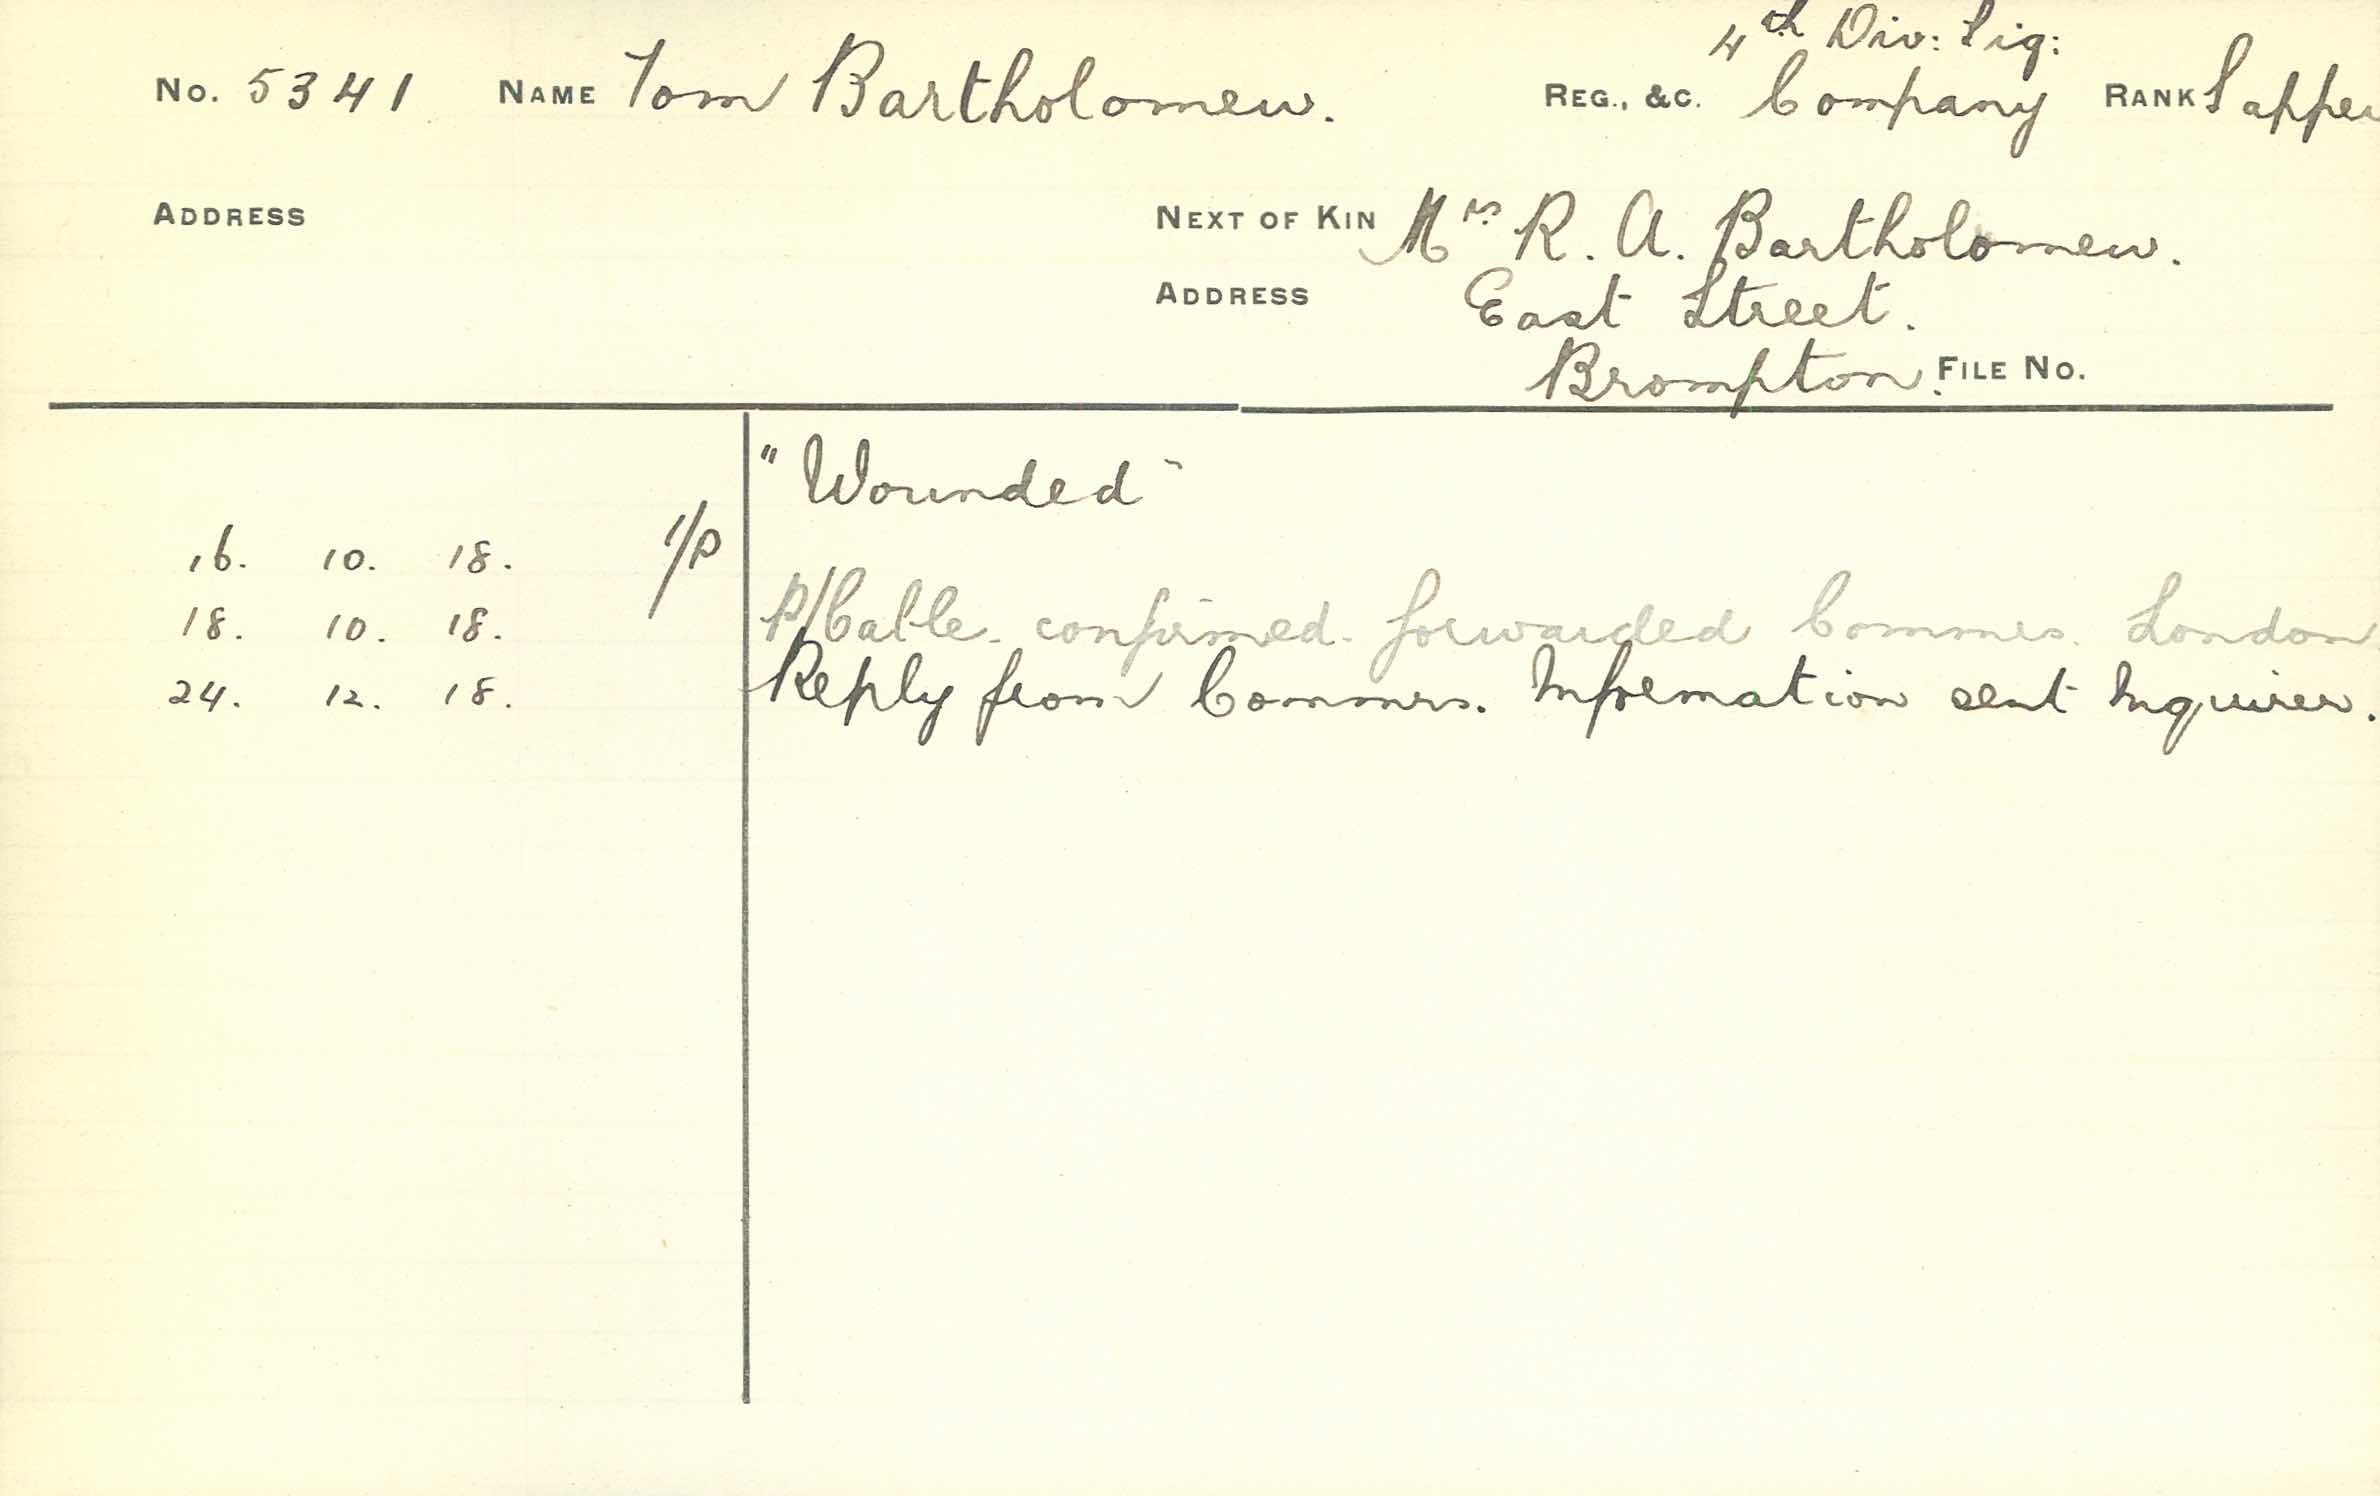 4th Div: Sig:
No. 5341 NAME Tom Bartholomew. REG., &C. Company RANK Sapper
ADDRESS NEXT OF KIN Mrs R. A. Bartholomew.
ADDRESS East Street.
Brompton. FILE NO.
"Wounded"
16. 10. 18. I/P
18. 10. 18. P/Cable. confirmed. forwarded Commrs. London
24. 12. 18. Reply from Commrs. Information sent Inquirer.